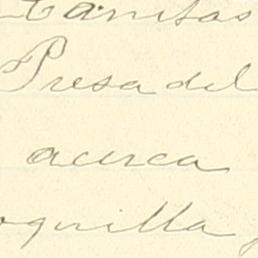 tanitas
Presa del
acerca
oquilla,